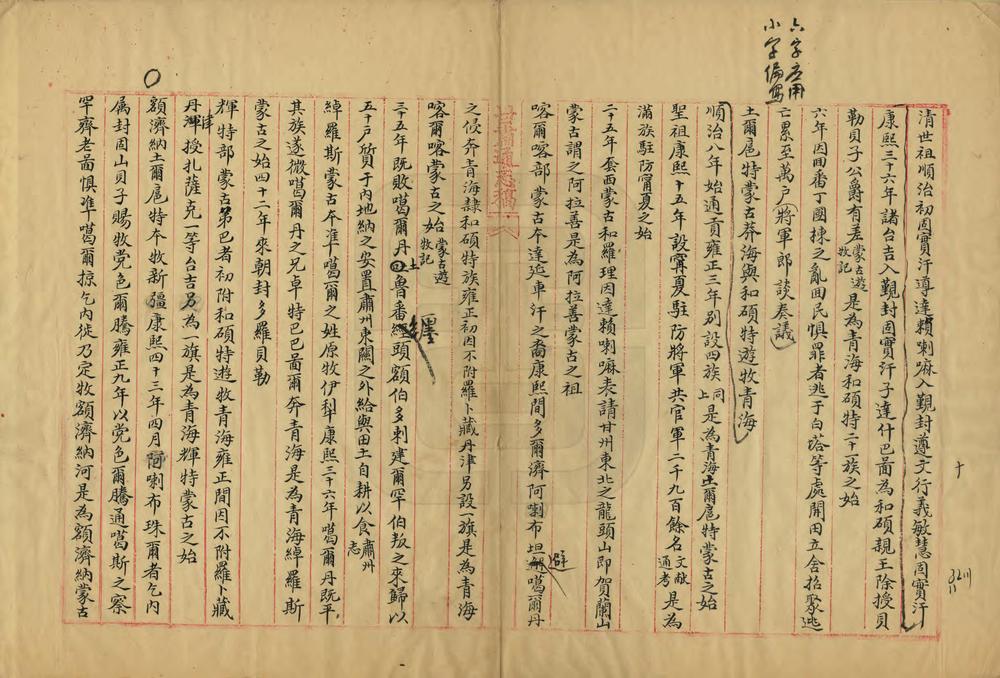 六字應用
小字偏寫
清世祖順治初固實汗導達賴喇嘛入覲封遵文行義敏慧固實汗
康熙三十六年諸台吉入覲封固實汗子達什巴圖為和碩親王除授貝
勒貝子公爵有差蒙古遊牧記是為青海和碩特二十一族之始
六年因回番丁國棟之亂回民懼罪者逃于白塔等處開田立舍招聚逃
亡累至萬戶將軍郎談奏議
土爾扈特蒙古莽海與和碩特遊牧青海
順治八年始通貢雍正三年別設四族同上是為青海土爾扈特蒙古之始
聖祖康熙十五年設甯夏駐防將軍共官軍二千九百餘名文献通考是為
滿族駐防甯夏之始
二十五年套西蒙古和羅理因達賴喇嘛表請甘州東北之龍頭山即賀蘭山
蒙古謂之阿拉善是為阿拉善蒙古之祖
喀爾喀部蒙古本達延車汗之裔康熙間多爾濟阿喇布坦避噶爾丹
甘肅通志稿
之侵奔青海隸和碩特族雍正初因不附羅卜藏丹津另設一旗是為青海
喀爾喀蒙古之始蒙古遊牧記
三十五年既敗噶爾丹土魯番纏頭額伯多剌建爾罕伯叛之來歸以
五十戶質于內地納之安置肅州東關之外給與田土自耕以食肅州志
綽羅斯蒙古本準噶爾之姓原牧伊犁康熙三十六年噶爾丹既平
其族遂微噶爾丹之兄卓特巴巴圖爾奔青海是為青海綽羅斯
蒙古之始四十二年來朝封多羅貝勒
輝特部蒙古第巴者初附和碩特遊牧青海雍正間因不附羅卜藏
丹津授扎薩克一等台吉另為一旗是為青海輝特蒙古之始
額濟納土爾扈特本牧新疆康熙四十三年四月阿喇布珠爾者乞內
属封固山貝子賜牧党色爾騰雍正九年以党色爾騰通噶斯之察
罕齊老圖懼準噶爾掠乞內徙乃定牧額濟納河是為額濟納蒙古
十